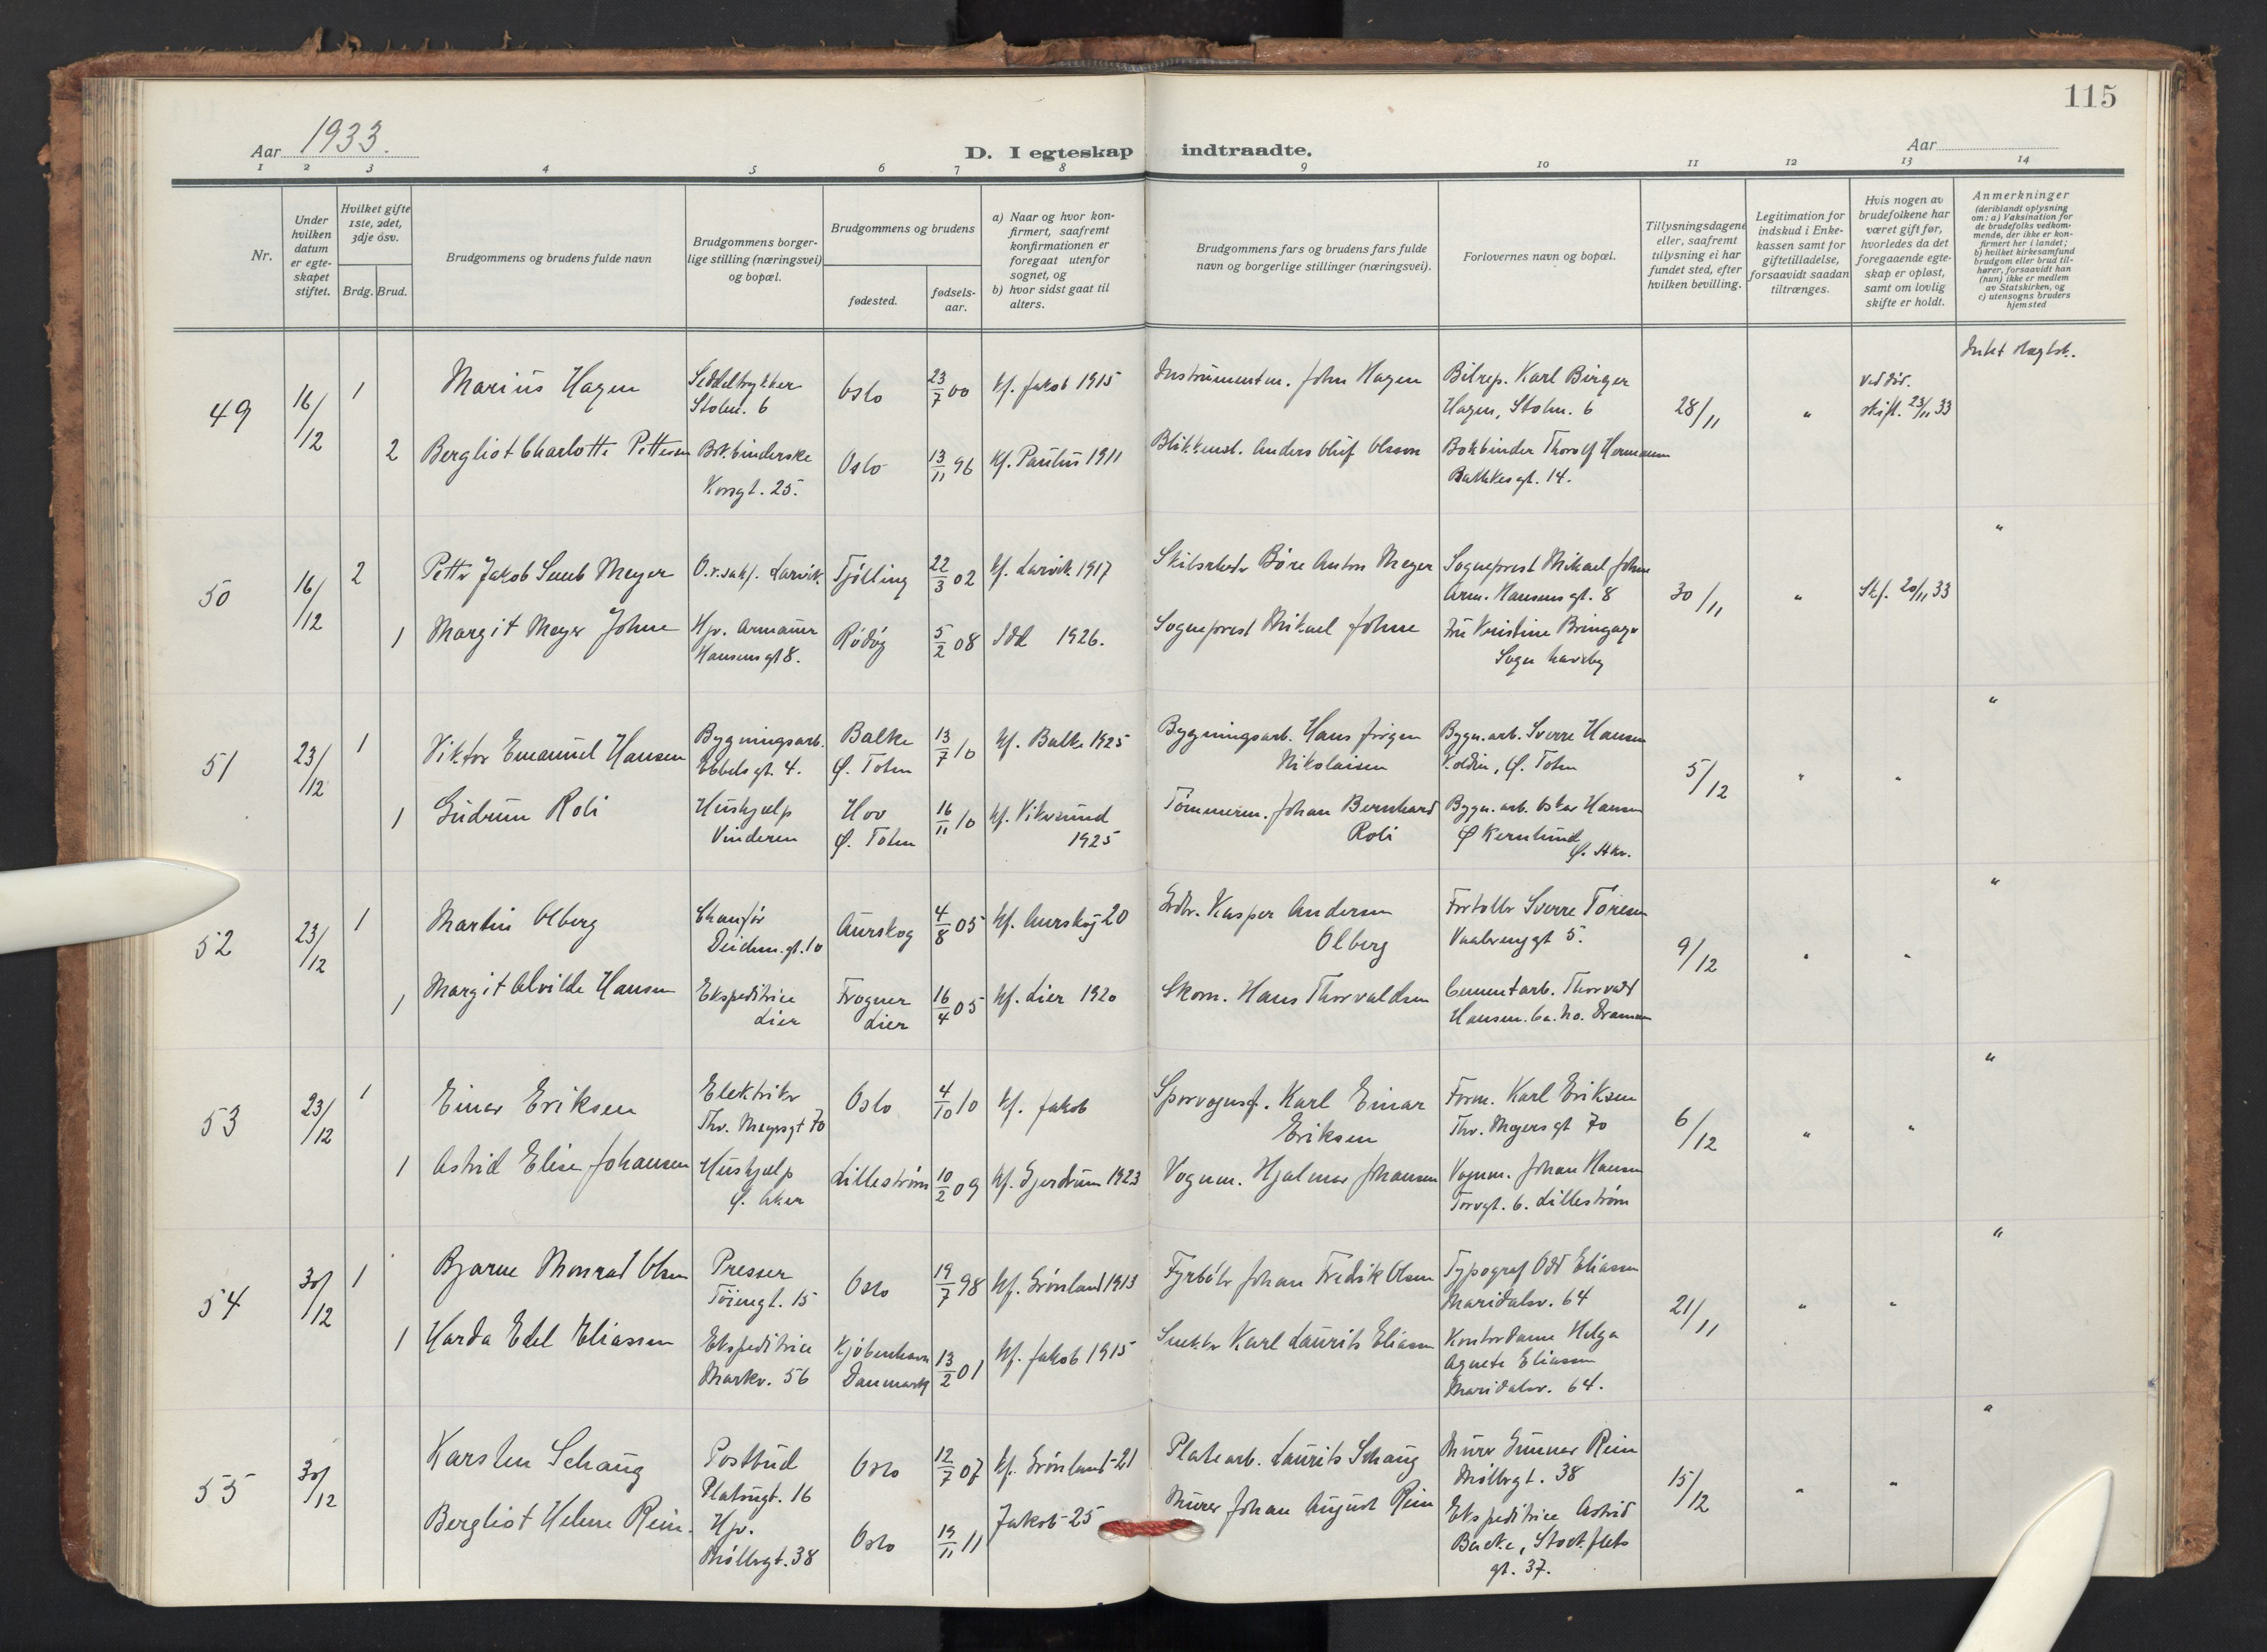 115
Aar 1933.
D. I egteskap indtraadte.
Aar
1 2 3 4 5 6 7 8 9 10 11 12 13 14
Nr.
Under
hvilken
datum
er egte-
skapet
stiftet.
Hvilket gifte
1ste, 2det,
3dje osv.
Brdg. Brud.
Brudgommens og brudens fulde navn
Brudgommens borger-
lige stilling (næringsvei)
og bopæl.
Brudgommens og brudens
fødested.
fødsels-
aar.
a) Naar og hvor kon-
firmert, saafremt
konfirmationen er
foregaat utenfor
sognet, og
b) hvor sidst gaat til
alters.
Brudgommens fars og brudens fars fulde
navn og borgerlige stillinger (næringsvei).
Forlovernes navn og bopæl.
Tillysningsdagene
eller, saafremt
tillysning ei har
fundet sted, efter
hvilken bevilling.
Legitimation for
indskud i Enke-
kassen samt for
giftetilladelse,
forsaavidt saadan
tiltrænges.
Hvis nogen av
brudefolkene har
været gift før,
hvorledes da det
foregaaende egte-
skap er opløst,
samt om lovlig
skifte er holdt.
Anmerkninger
(deriblandt oplysning
om: a) Vaksination for
de brudefolks vedkom-
mende, der ikke er kon-
firmert her i landet;
b) hvilket kirkesamfund
brudgom eller brud til-
hører, forsaavidt han
(hun) ikke er medlem
av Statskirken, og
c) utensogns bruders
hjemsted
49
16/12
1
Marius Hagen
Seddeltrykker
Stolm. 6
Oslo
23/7 00
Kf. Jakob 1915
Instrumentm. John Hagen
Bilrep. Karl Birger
Hagen, Stolm. 6
28/11
"
Ved dør.
skift. 23/11 33
Intet slegtsk.
2
Bergliot Charlotte Pettersen
Bokbinderske
Korsgt. 25.
Oslo
13/11 96
Kf. Paulus 1911
Blikkensl. Anders Oluf Olsson
Bokbinder Thorolf Hermansen
Bakkegt. 14.
50
16/12
2
Petter Jakob Meyer
O.r.sakf. Larvik.
Tjølling
22/3 02
Kf. Larvik 1917
Børe Anton Meyer
Sogneprest Mikael Johne
Arm. Hansens gt. 8
30/11
"
Skf. 20/11 33
"
1
Margit Meyer Johne
Hjv. Armauer
Hansens gt 8.
Rödöy
5/2 08
Idd 1926.
Sogneprest Mikael Johne
Fru Kristine
Sogn
51
23/12
1
Viktor Emanuel Hansen
Bygningsarb.
Ebbels gt. 4.
Balke
Ø. Toten
13/7 10
Kf. Balke 1925
Bygningsarb. Hans Jørgen
Nikolaisen
Bygn. arb. Sverre Hansen
Ø. Toten
5/12
"
"
"
1
Gudrun Roli
Hushjælp
Vinderen
Hov
Ø. Toten
16/11 10
Kf. Vikersund
1925
Tømmerm. Johan Bernhard
Roli
Bygn. arb. Oskar Hansen
52
23/12
1
Martin Olberg
Chauför
Deichm. gt. 10
Aurskog
4/8 05
Kf. Aurskog 20
Grdbr. Kasper Andersen
Olberg
Fortoller Sverre Toresen
Vaalereng gt 5.
9/12
"
"
"
1
Margit Alvilde Hansen
Ekspeditrice
Lier
Frogner
Lier
16/4 05
Kf. Lier 1920
Skom. Hans Thorvaldsen
Cementarb. Thorvald
Hansen. Drammen
53
23/12
1
Einar Eriksen
Elektriker
Thv. Meyersgt 70
Oslo
4/10 10
Kf. Jakob
Sporvognsf. Karl Einar
Eriksen
Form. Karl Eriksen
Thv. Meyers gt 70
6/12
"
"
"
1
Astrid Elise Johansen
Hushjælp
Ø. Aker
Lillestrøm
10/2 09
Kf. Gjerdrum 1923
Vognm. Hjalmar Johansen
Vognm. Johan Hansen
Torvgt. 6. Lillestrøm
54
30/12
1
Bjarne Monrad Olsen
Presser
Töiengt. 15
Oslo
19/7 98
Kf. Grønland 1913
Fyrböter Johan Fredrik Olsen
Typograf Odd Eliassen
Maridalsv. 64
21/11
"
"
"
1
Harda Edel Eliassen
Ekspeditrice
Markv. 56
Kjöbenhavn
Danmark
13/2 01
Kf. Jakob 1915
Snekker Karl Laurits Eliassen
Kontordame Helga
Agnete Eliassen
Maridalsv. 64.
55
30/12
Karsten Schaug
Postbud
Platougt. 16
Oslo
12/7 07
Kf. Grønland-21
Platearb. Laurits Schaug
Murer Gunnar Rein
Møllergt. 38
15/12
"
"
"
Bergliot Helene Rein.
Hjv.
Møllergt. 38
Oslo
19/11 11
Jakob-25
Murer Johan August Rein
Ekspeditrice Astrid
Backe, Stockflets
gt. 37.